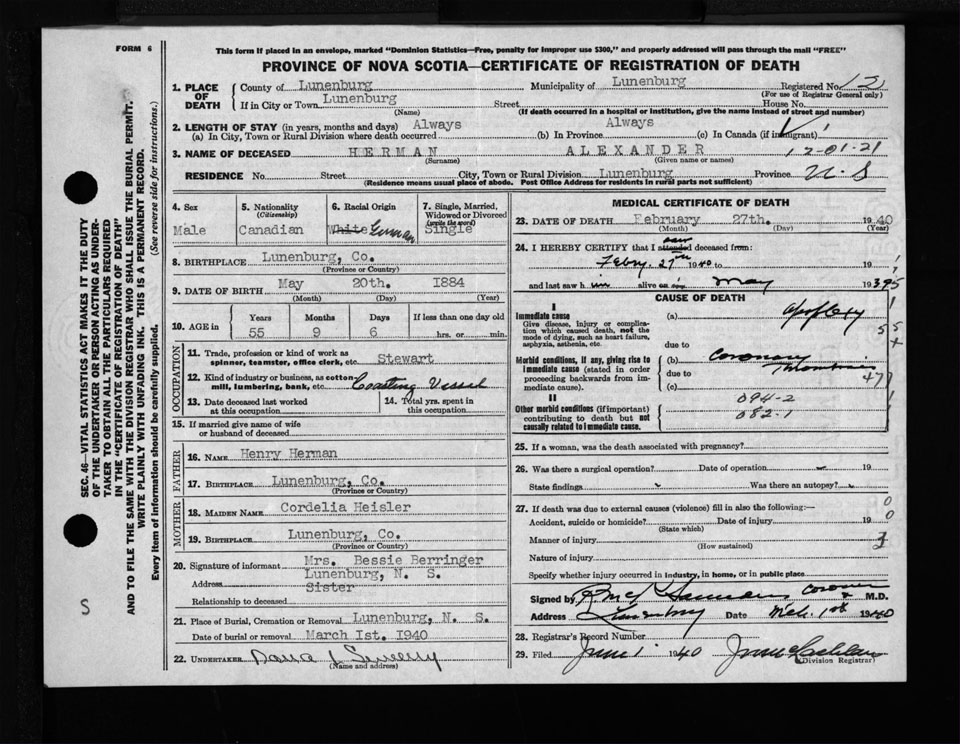 FORM 6
This form if placed in an envelope, marked "Dominion Statistics—Free, penalty for improper use $300," and properly addressed will pass through the mail "FREE"
PROVINCE OF NOVA SCOTIA—CERTIFICATE OF REGISTRATION OF DEATH
1. PLACE OF DEATH
County of Lunenburg Municipality of Lunenburg Registered No. 12
(For use of Registrar General only)
If in City or Town Lunenburg Street House No.
(Name) (If death occurred in a hospital or institution, give the name instead of street and number)
2. LENGTH OF STAY (in years, months and days) Always Always
(a) In City, Town or Rural Division where death occurred (b) In Province (c) In Canada (if immigrant)
3. NAME OF DECEASED HERMAN ALEXANDER 12-01-21
(Surname) (Given name or names)
RESIDENCE No. Street City, Town or Rural Division Lunenburg Province N.S
(Residence means usual place of abode. Post Office Address for residents in rural parts not sufficient)
4. Sex
Male
5. Nationality
(Citizenship)
Canadian
6. Racial Origin
White German
7. Single, Married, Widowed or Divorced
(write the word)
Single
8. BIRTHPLACE Lunenburg, Co.
(Province or Country)
9. DATE OF BIRTH May 20th. 1884
(Month) (Day) (Year)
10. AGE in
Years Months Days If less than one day old
55 9 6 hrs. or min.
OCCUPATION
11. Trade, profession or kind of work as
spinner, teamster, office clerk, etc. Stewart
12. Kind of industry or business, as cotton-
mill, lumbering, bank, etc. Coasting Vessel
13. Date deceased last worked
at this occupation
14. Total yrs. spent in
this occupation
15. If married give name of wife
or husband of deceased
FATHER
16. NAME Henry Herman
17. BIRTHPLACE Lunenburg, Co.
(Province or Country)
MOTHER
18. MAIDEN NAME Cordelia Heisler
19. BIRTHPLACE Lunenburg, Co.
(Province or Country)
20. Signature of informant Mrs. Bessie Berringer
Address Lunenburg, N. S.
Relationship to deceased Sister
21. Place of Burial, Cremation or Removal Lunenburg, N. S.
Date of burial or removal March 1st. 1940
22. UNDERTAKER
(Name and address)
MEDICAL CERTIFICATE OF DEATH
23. DATE OF DEATH February 27th. 1940
(Month) (Day) (Year)
24. I HEREBY CERTIFY that I attended saw deceased from:
Febry. 27th 1940 to 19
and last saw him alive on May 1939
CAUSE OF DEATH
I
Immediate cause
Give disease, injury or complication which caused death, not the mode of dying, such as heart failure, asphyxia, asthenia, etc.
(a) Apoplexy
due to
Morbid conditions, if any, giving rise to immediate cause (stated in order proceeding backwards from immediate cause).
(b) Coronary Thrombosis
due to
(c)
II
Other morbid conditions (if important) contributing to death but not causally related to immediate cause.
094-2
082-1
25. If a woman, was the death associated with pregnancy?
26. Was there a surgical operation? Date of operation 19
State findings Was there an autopsy?
27. If death was due to external causes (violence) fill in also the following:—
Accident, suicide or homicide? Date of injury 19
(State which)
Manner of injury
(How sustained)
Nature of injury
Specify whether injury occurred in industry, in home, or in public place
Signed by Coroner M.D.
Address Lunenburg Date Mch. 1st 1940
28. Registrar's Record Number
29. Filed June 1 1940
(Division Registrar)
SEC. 46—VITAL STATISTICS ACT MAKES IT THE DUTY
OF THE UNDERTAKER OR PERSON ACTING AS UNDER-
TAKER TO OBTAIN ALL THE PARTICULARS REQUIRED
IN THE "CERTIFICATE OF REGISTRATION OF DEATH"
AND TO FILE THE SAME WITH THE DIVISION REGISTRAR WHO SHALL ISSUE THE BURIAL PERMIT.
WRITE PLAINLY WITH UNFADING INK. THIS IS A PERMANENT RECORD.
Every item of information should be carefully supplied. (See reverse side for instructions.)
S